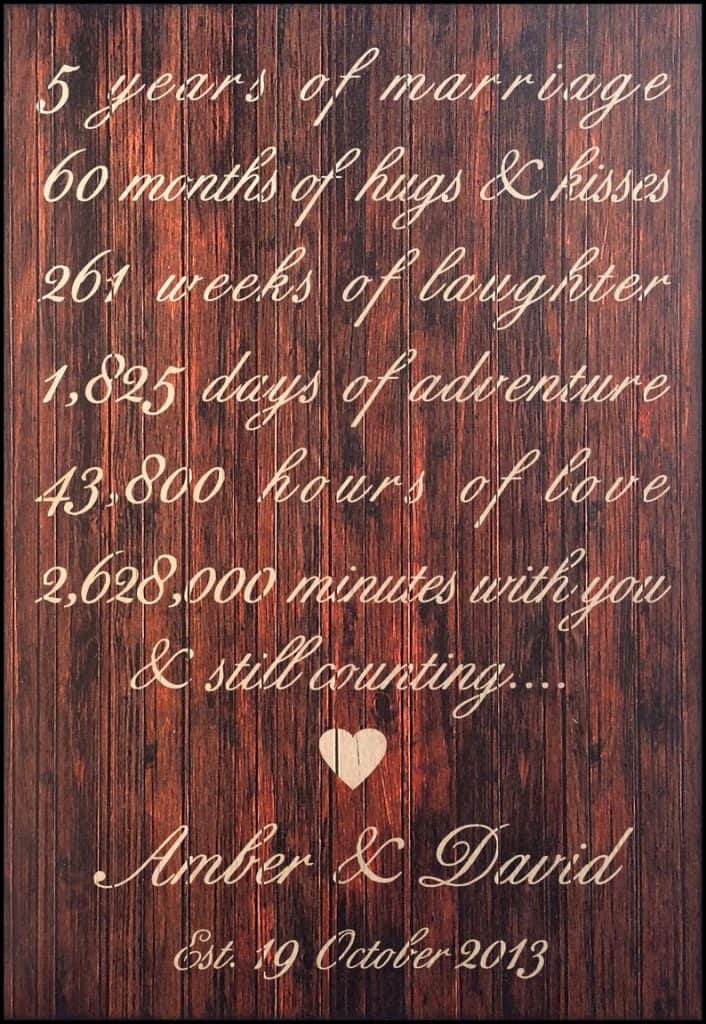 5 years of marriage
60 months of hugs & kisses
261 weeks of laughter
1,825 days of adventure
43,800 hours of love
2,628,000 minutes with you
& still counting....
Amber & David
Est. 19 October 2013